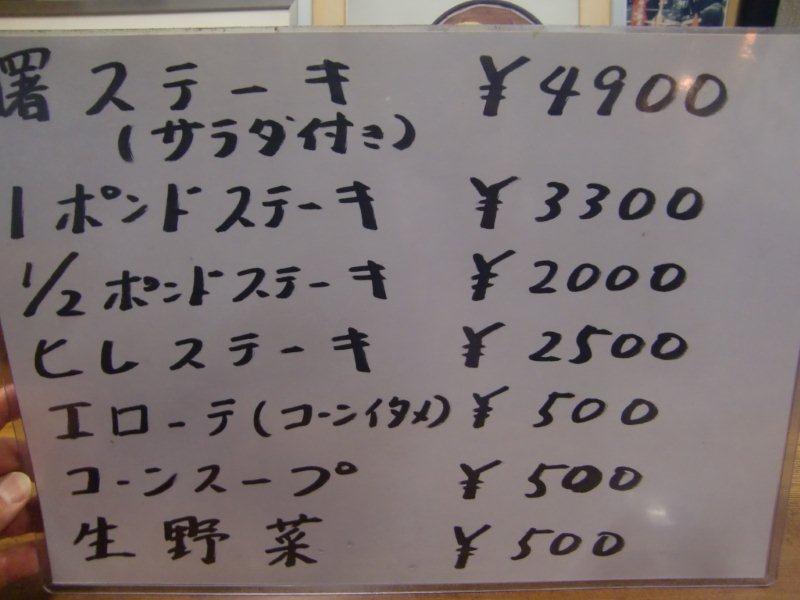 曙ステーキ ¥4900
(サラダ付き)
1ポンドステーキ ¥3300
1/2ポンドステーキ ¥2000
ヒレステーキ ¥2500
エローテ(コーンイタメ) ¥500
コーンスープ ¥500
生野菜 ¥500